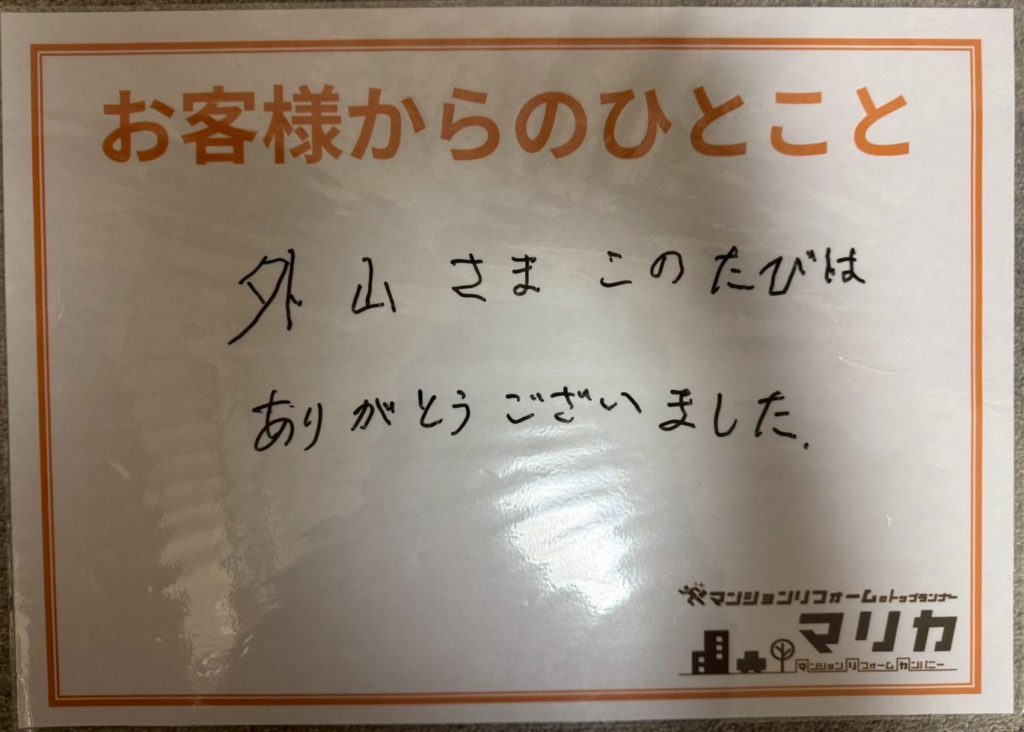 お客様からのひとこと
外山さまこのたびは
ありがとうございました.
マンションリフォームのトップランナー
マリカ
マンションリフォームカンパニー